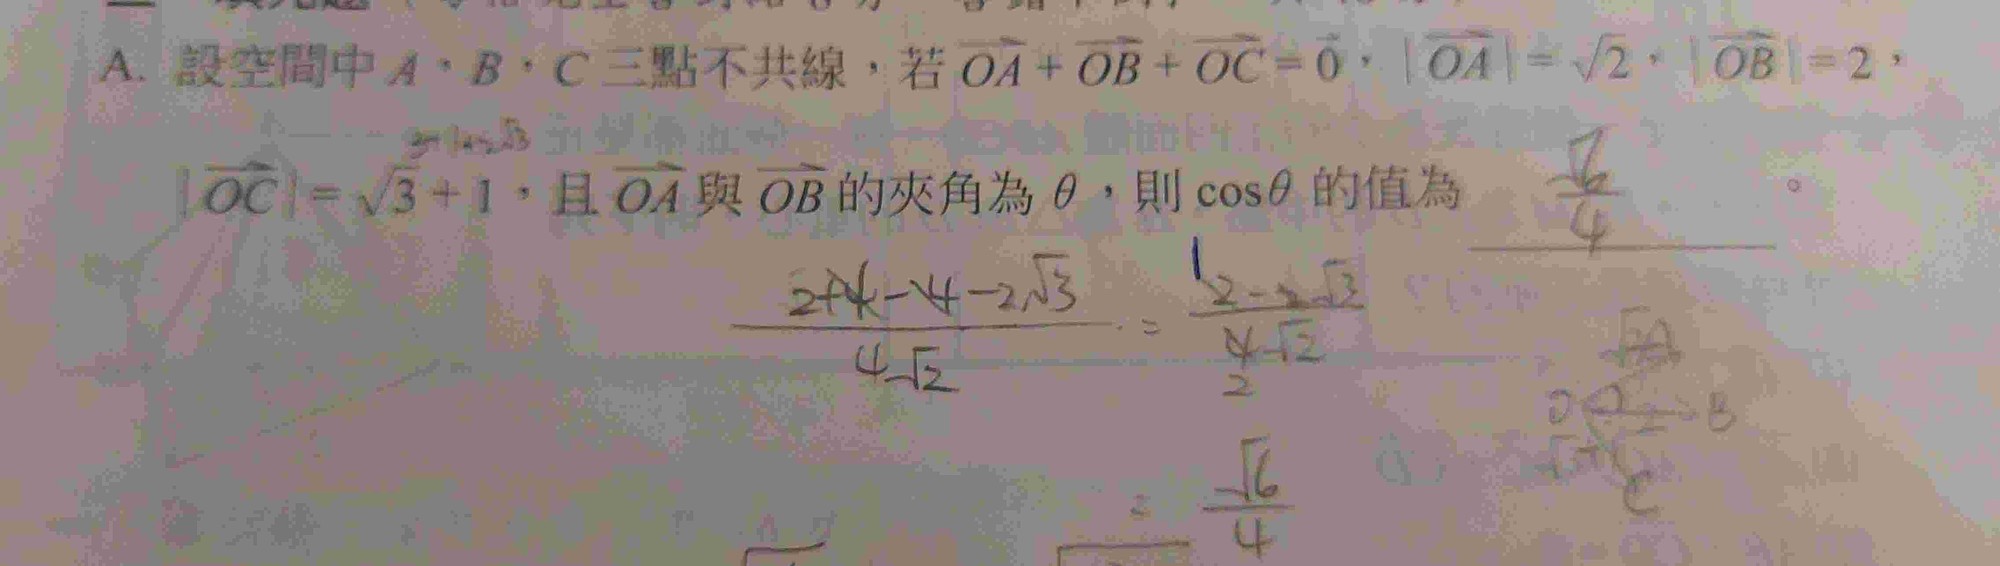 A. 設空間中 A、B、C 三點不共線，若 $\overrightarrow{OA}+\overrightarrow{OB}+\overrightarrow{OC}=\vec{0}$，$|\overrightarrow{OA}|=\sqrt{2}$，$|\overrightarrow{OB}|=2$，
$|\overrightarrow{OC}|=\sqrt{3}+1$，且 $\overrightarrow{OA}$ 與 $\overrightarrow{OB}$ 的夾角為 θ，則 cosθ 的值為 $\frac{\sqrt{6}}{4}$ 。
$\frac{2+4-4-2\sqrt{3}}{4\sqrt{2}}=\frac{2-2\sqrt{3}}{4\sqrt{2}}$
1
2
B
C
$=\frac{\sqrt{6}}{4}$